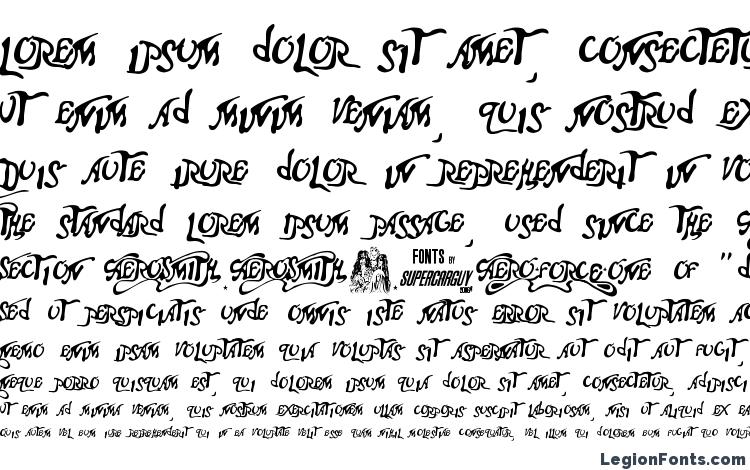 LOREM IPSUM DOLOR SIT AMET, CONSECTETU
UT ENIM AD MINIM VENIAM, QUIS NOSTRUD EX
DUIS AUTE IRURE DOLOR IN REPREHENDERIT IN VO
THE STANDARD LOREM IPSUM PASSAGE, USED SINCE THE
SECTION AEROSMITH.AEROSMITH. FONTS BY SUPERCARGUY AERO-FORCE-ONE OF "d
SEd UT PERSPICIATIS UNdE OMNIS ISTE NATUS ERROR SIT VOLUPTATEM AC
NEMO ENIM IPSAM VOLUPTATEM QUIA VOLUPTAS SIT ASPERNATUR AUT OdIT AUT FUGIT,
NEQUE PORRO QUISQUAM EST, QUI dOLOREM IPSUM QUIA dOLOR SIT AMET, CONSECTETUR, AdIPISCI
UT ENIM Ad MINIMA VENIAM, QUIS NOSTRUM EXERCITATIONEM ULLAM CORPORIS SUSCIPIT LABORIOSAM, NISI UT ALIQUId EX EA
QUIS AUTEM VEL EUM IURE REPREHENdERIT QUI IN EA VOLUPTATE VELIT ESSE QUAM NIHIL MOLESTIAE CONSEQUATUR, VEL ILLUM QUI dOLOREM EUM FUGIAT QUO VOLUP
LegionFonts.com